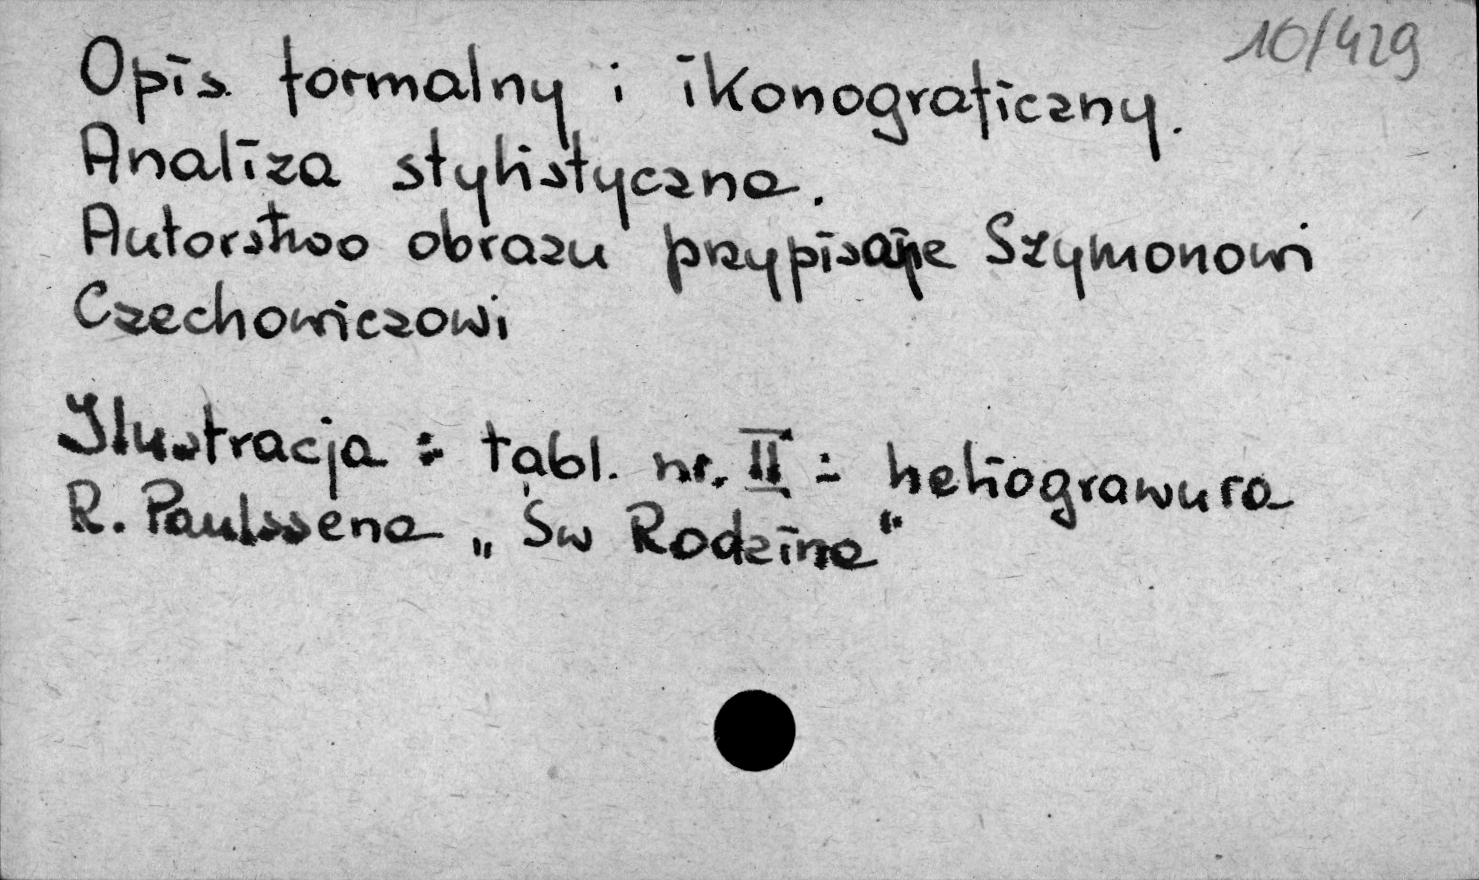 10/429
Opis formalny i ikonograficzny.
Analiza stylistyczna.
Autorstwo obrazu przypisaje Szymonowi
Czechowiczowi
Ilustracja : tabl. nr. II : heliograwura
R. Paulssena „Św Rodzina"